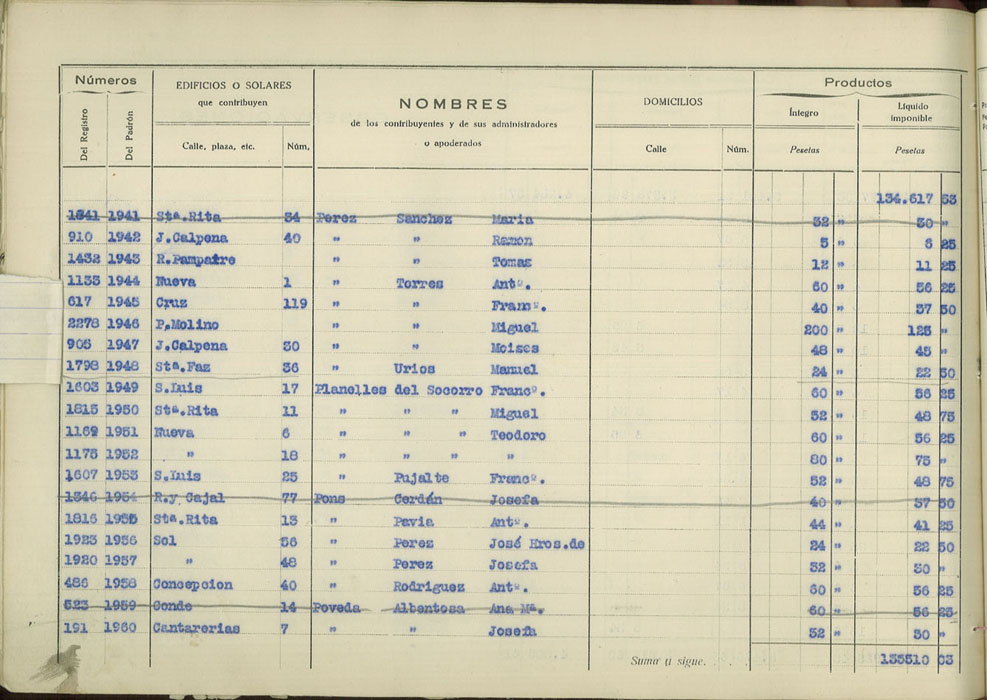 Números EDIFICIOS O SOLARES que contribuyen NOMBRES de los contribuyentes y de sus administradores o apoderados DOMICILIOS Productos
Del Registro Del Padrón Calle, plaza, etc. Núm, Calle Núm. Íntegro Pesetas Líquido imponible Pesetas
134.617 53
1341 1941 Stª.Rita 34 Perez Sanchez Maria 32 " 30 "
910 1942 J.Calpena 40 " " Ramon 5 " 6 25
1432 1943 R.Pampatre " " Tomas 12 " 11 25
1133 1944 Nueva 1 " Torres Antº. 60 " 56 25
617 1945 Cruz 119 " " Framº. 40 " 37 50
2278 1946 P.Molino " " Miguel 200 " 125 "
905 1947 J.Calpena 30 " " Moises 48 " 45 "
1798 1948 Stª.Faz 36 " Urios Manuel 24 " 22 50
1603 1949 S.Luis 17 Planelles del Socorro Francº. 60 " 56 25
1815 1950 Stª.Rita 11 " " " Miguel 52 " 48 75
1162 1951 Nueva 6 " " " Teodoro 60 " 56 25
1175 1952 " 18 " " " " 80 " 75 "
1607 1953 S.Luis 25 " Pujalte Francº. 52 " 48 75
1346 1954 R.y Cajal 77 Pons Cerdán Josefa 40 " 37 50
1816 1955 Stª.Rita 13 " Pavia Antº. 44 " 41 25
1923 1956 Sol 56 " Perez José Hros.de 24 " 22 50
1920 1957 " 48 " Perez Josefa 32 " 30 "
486 1958 Concepcion 40 " Rodriguez Antº. 60 " 56 25
523 1959 Conde 14 Poveda Albentosa Ana Mª. 60 " 56 25
191 1960 Cantarerias 7 " " Josefa 32 " 30 "
Suma y sigue. 135510 03